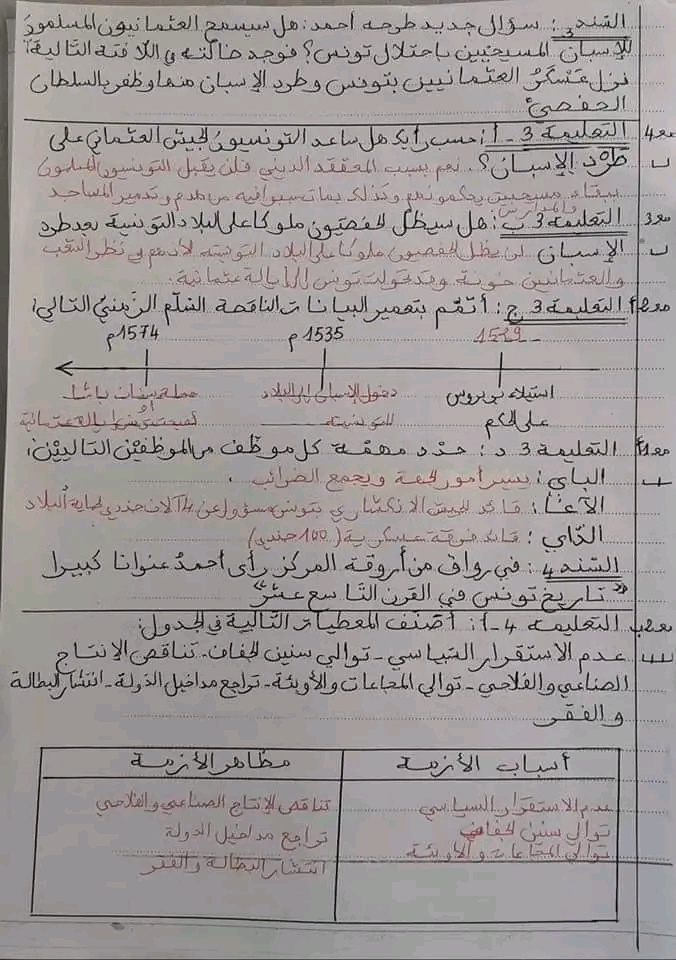 السند 3: سؤال جديد طرحه أحمد: هل سيسمح العثمانيون المسلمون
للإسبان المسيحيين باحتلال تونس؟ فوجد ضالته في اللافتة التالية:
نزل عسكر العثمانيين بتونس وطرد الإسبان منها وظفر بالسلطان
الحفصي"
مع4 التعليمة 3-أ: حسب رأيك هل ساعد التونسيون الجيش العثماني على
طرد الإسبان؟. نعم بسبب المعتقد الديني فلن يقبل التونسيون المسلمون
ببقاء مسيحيين يحكمونهم وكذلك بما تسبوا فيه من هدم وتدمير المساجد
والمدارس
مع3 التعليمة 3 ب: هل سيظل الحفصيون ملوكا على البلاد التونسية بعد طرد
الإسبان لن يظل الحفصيون ملوكا على البلاد التونسية لأنهم في نظر الشعب
والعثمانيين خونة وقد تحولت تونس إلى إيالة عثمانية.
مع2أ التعليمة 3 ج: أتمّم بتعمير البيانات الناقصة السّلّم الزّمنيّ التالي:
1574م 1535م 1529
استيلاء بربروس دخول الإسبان إلى البلاد حملة سنان باشا
على الحكم التونسية أصبحت تونس إيالة عثمانية
مع1أ التعليمة 3 د: حدّد مهمّة كل موظّف من الموظفين التاليين:
الباي: يسير أمور الجهة ويجمع الضرائب.
الآغا: قائد الجيش الانكشاري بتونس مسؤول عن 4 آلاف جندي لحماية البلاد
الدّاي: قائد فرقة عسكرية (100 جندي)
السّند 4: في رواق من أروقة المركز رأى أحمد عنوانا كبيرا
«تاريخ تونس في القرن التاسع عشر»
مع2ب التعليمة 4-أ: أصنّف المعطيات التالية في الجدول:
عدم الاستقرار السّياسي - توالي سنين الجفاف - تناقص الإنتاج
الصناعي والفلاحي - توالي المجاعات والأوبئة - تراجع مداخيل الدولة - انتشار البطالة
والفقر
أسباب الأزمة مظاهر الأزمة
عدم الاستقرار السياسي تناقص الإنتاج الصناعي والفلاحي
توالي سنين الجفاف تراجع مداخيل الدولة
توالي المجاعات والأوبئة انتشار البطالة والفقر